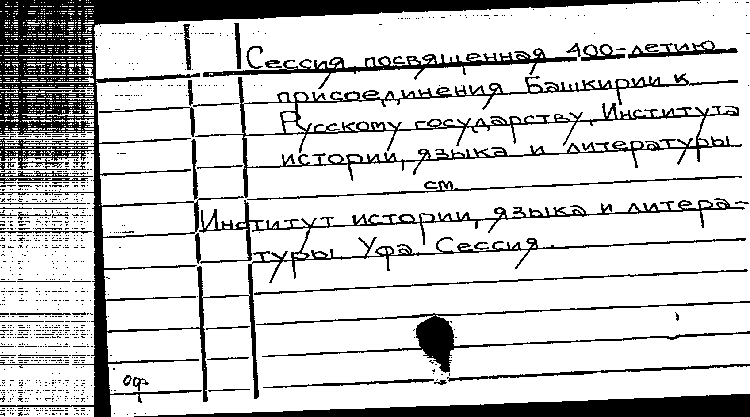 Сессия, посвященная 400-летию
присоединения Башкирии к
Русскому государству, Института
истории, языка и литературы
см.
Институт истории, языка и литера-
туры Уфа Сессия.